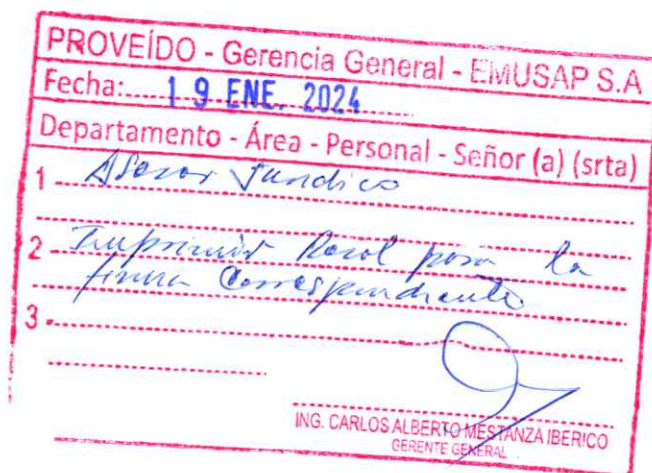 PROVEÍDO - Gerencia General - EMUSAP S.A
Fecha: 19 ENE. 2024
Departamento - Área - Personal - Señor (a) (srta)
1 Asesor Juridico
2 Imprimir Resol para la
firma Correspondiente
3
ING. CARLOS ALBERTO MESTANZA IBERICO
GERENTE GENERAL